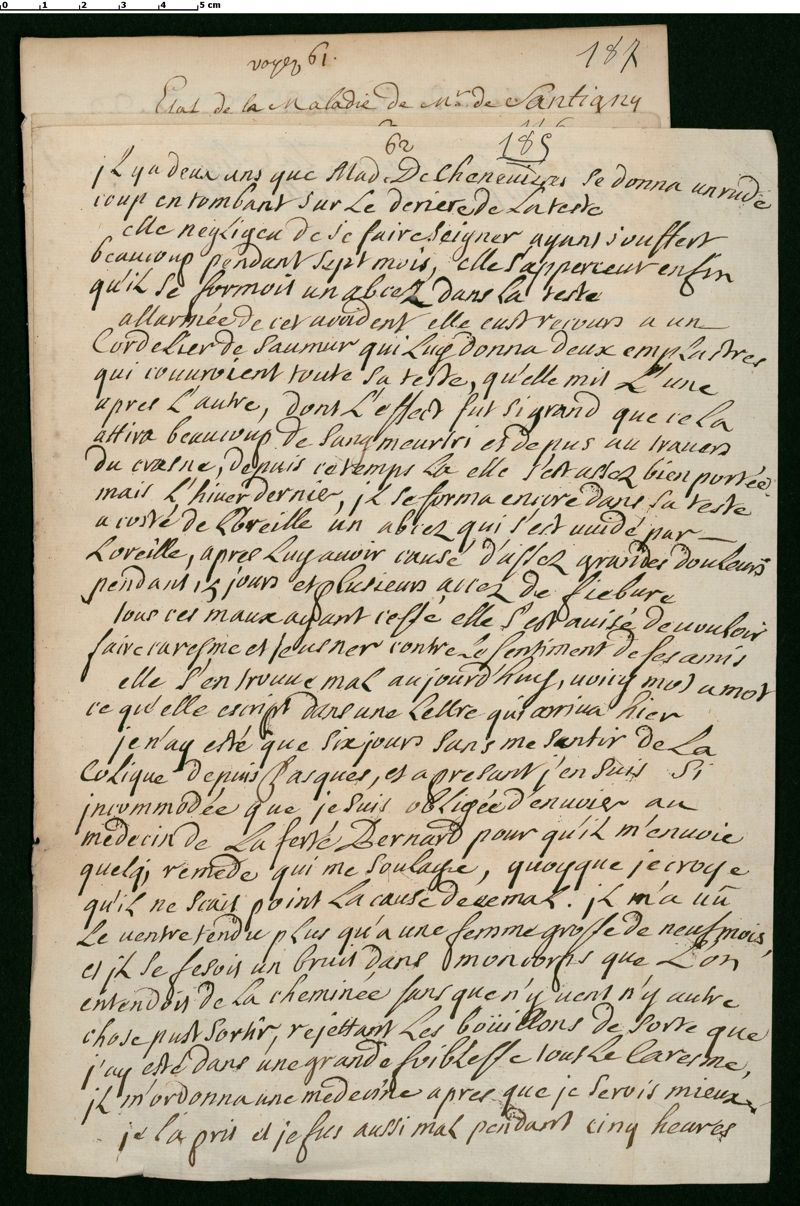 0 1 2 3 4 5 cm
voyez 61.
187
Estat de la Maladie de Mr. de Santigny
62
185
jl y a deux ans que Mad. De Chenevizes se donna un rude
coup en tombant sur Le deriere de La teste
elle negligea de se faire seigner ayant souffert
beaucoup pendant sept mois, elle s'apperceut enfin
qu'il se formoit un abcez dans la teste
allarmée de cet accident elle eust recours a un
Cordelier de Saumur qui Luy donna deux emplastres
qui couuroient toute sa teste, qu'elle mit L'une
apres L'autre, dont L'effect fut si grand que cela
attira beaucoup de sang meurtri et de pus au trauers
du crasne, depuis ce temps La elle s'est assez bien portée
mais L'hiver dernier, jl se forma encore dans sa teste
a costé de L'oreille un abcez qui s'est vuidé par
Loreille, apres Luy auoir causé d'assez grandes douleurs
pendant 15 jours et plusieurs accez de fiebure
tous ces maux ayant cessé elle s'est auisé de vouloir
faire caresme et jeusner contre Le sentiment de ses amis
elle s'en trouue mal aujourd'huy, voicy mot a mot
ce qu'elle escript dans une Lettre qui arriua hier
je n'ay esté que six jours sans me santir de La
Colique depuis Pasques, et apresant j'en suis si
jncommodée que je suis obligée d'enuoier au
medecin de La ferté Bernard pour qu'il m'enuoie
quelq, remede qui me soulage, quoyque je croye
qu'il ne scait point La cause de ce mal. jl m'a uû
Le uentre tendu plus qu'a une femme grosse de neuf mois,
et jl se fesoit un bruit dans mon corps que L'on
entendoit de La cheminée sans que n'y uent n'y autre
chose pust sortir, rejettant Les boüillons de sorte que
j'ay esté dans une grande foiblesse tout Le Caresme,
jl m'ordonna une medecine apres que je serois mieux
je la pris et je fus aussi mal pendant cinq heures